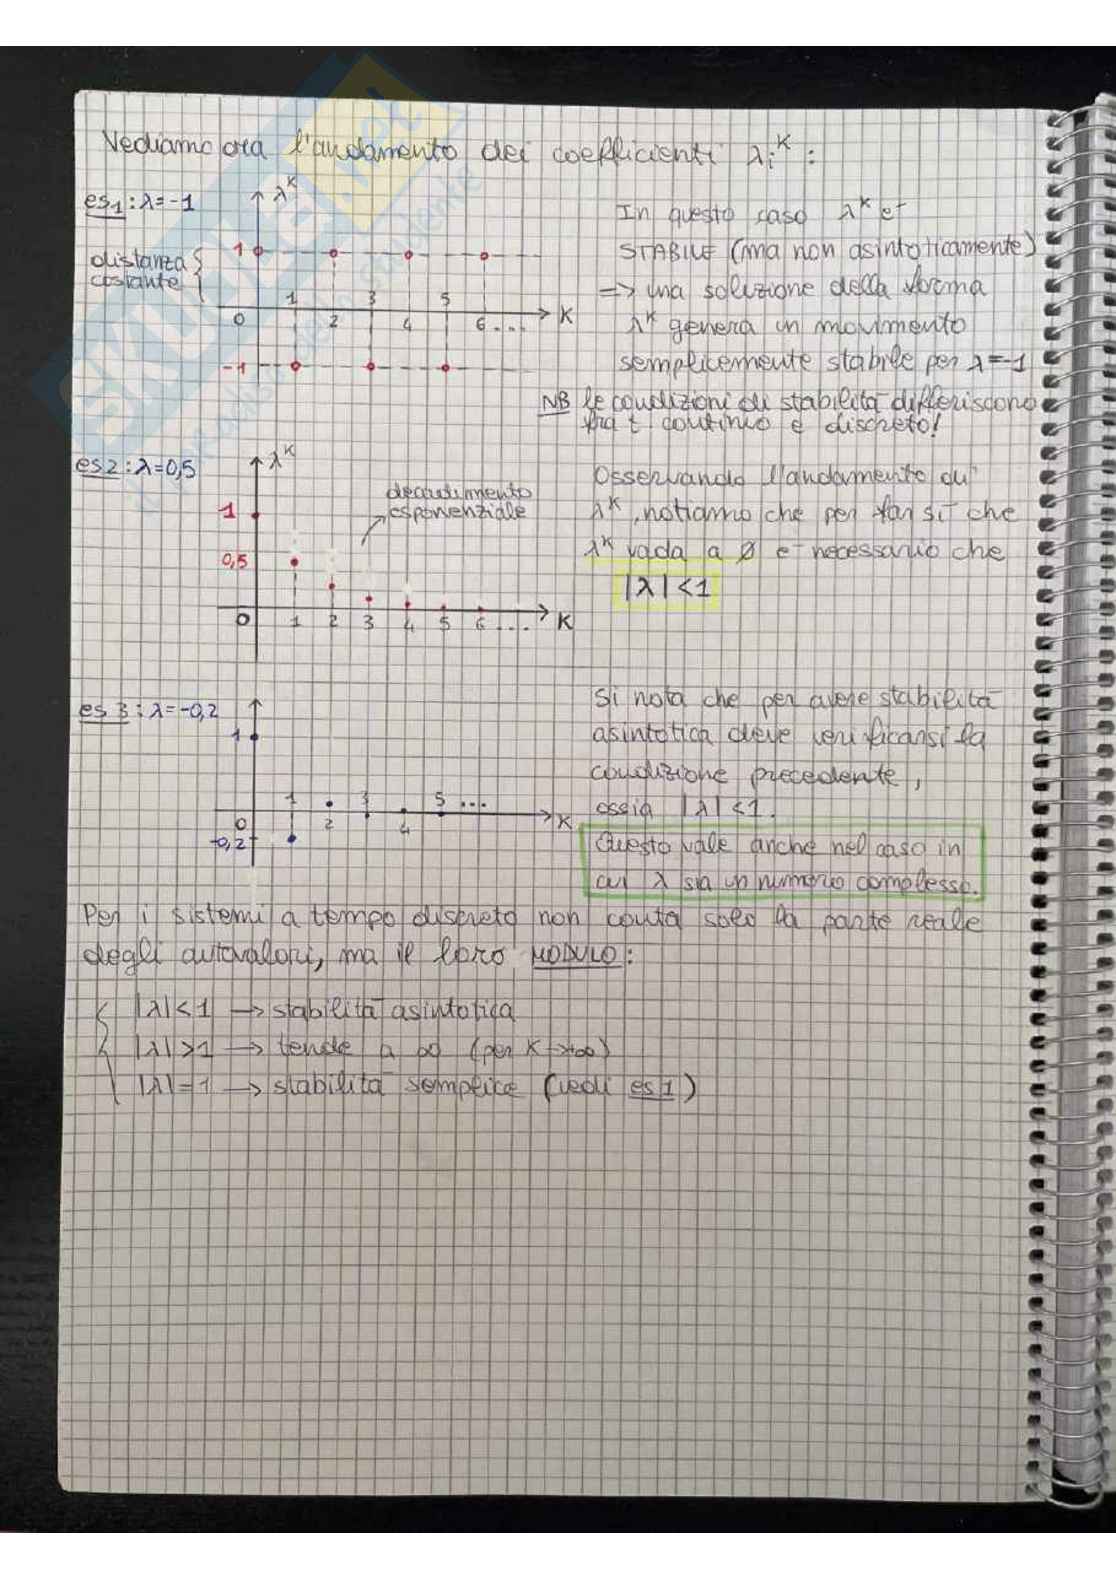 Vediamo ora l'andamento dei coefficienti λi^K :
es1 : λ=-1
λ^K
distanza
costante
1
1 3 5
0 2 4 6.... K
-1
In questo caso λ^K e-
STABILE (ma non asintoticamente)
=> una soluzione della forma
λ^K genera un movimento
semplicemente stabile per λ=-1
NB le condizioni di stabilità differiscono
fra t. continuo e discreto!
es2 : λ=0,5
λ^K
decadimento
esponenziale
1
0,5
0 1 2 3 4 5 6.... K
Osservando l'andamento di
λ^K, notiamo che per far sì che
λ^K vada a ∅ e- necessario che
|λ|<1
es 3 : λ=-0,2
1
1 3 5 ...
0 2 4 K
-0,2
Si nota che per avere stabilità
asintotica deve verificarsi la
condizione precedente,
ossia |λ|<1.
Questo vale anche nel caso in
cui λ sia un numero complesso.
Per i sistemi a tempo discreto non conta solo la parte reale
degli autovalori, ma il loro MODULO:
|λ|<1 → stabilità asintotica
|λ|>1 → tende a ∞ (per K→+∞)
|λ|=1 → stabilità semplice (vedi es1)
SKUOLA.net